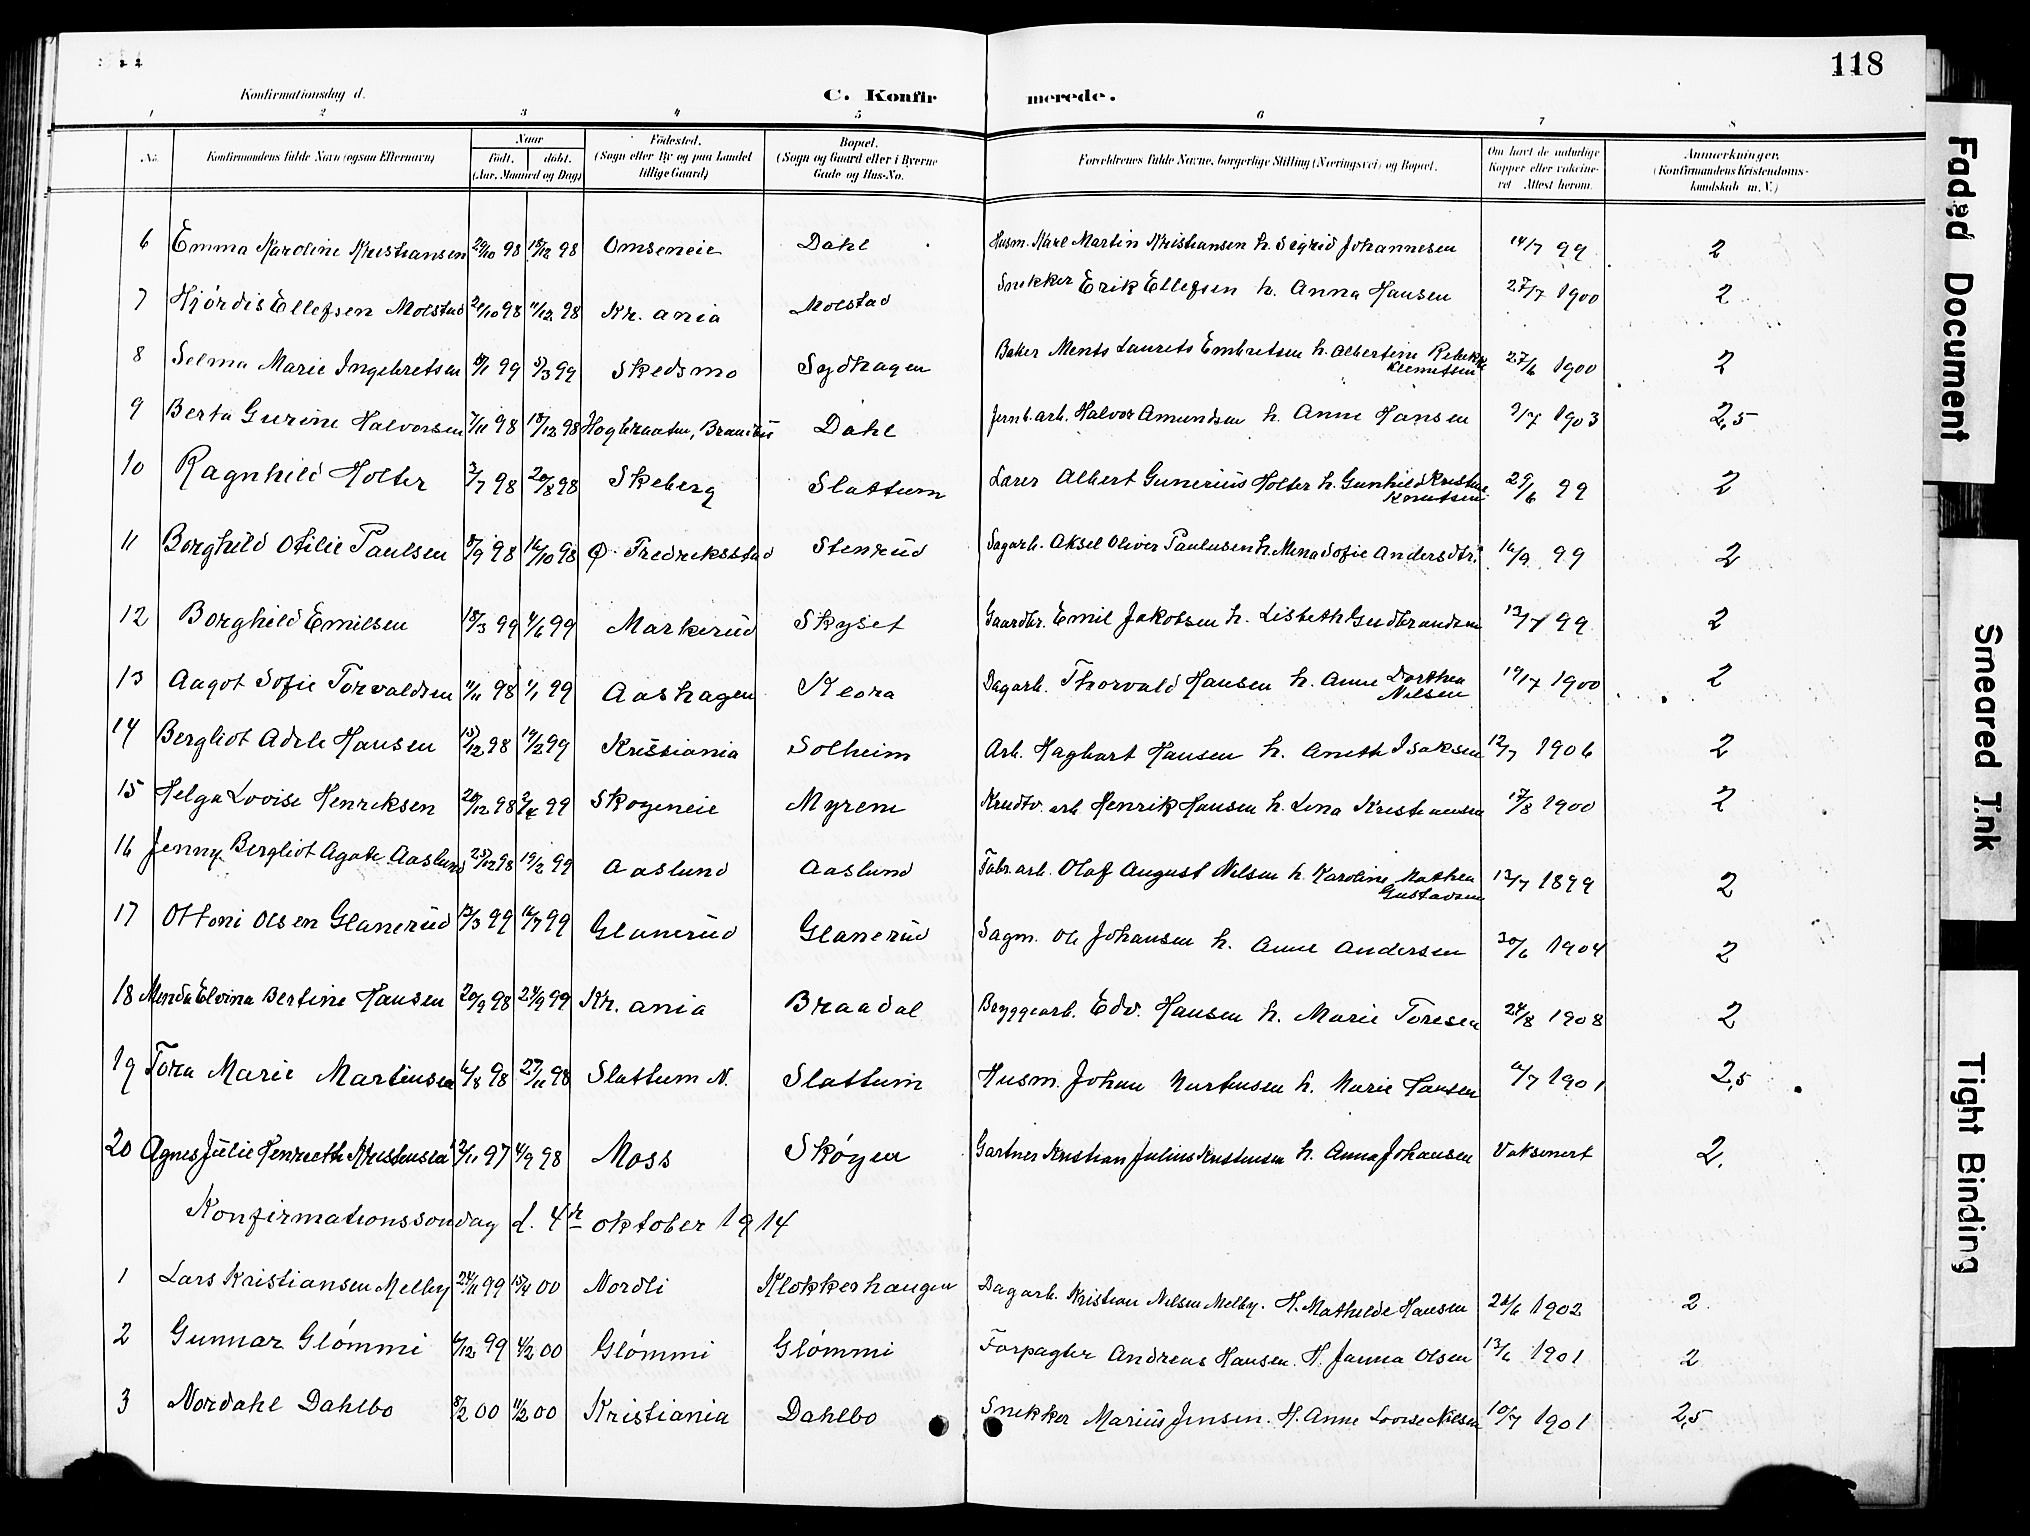 118
Konfirmationsdag d.
C. Konfir merede.
1 2 3 4 5 6 7 8
No. Konfirmandens fulde Navn (ogsaa Efternavn) Naar født. døbt. (Aar, Maaned og Dag) Fødested. (Sogn eller By og paa Landet tillige Gaard) Bopæl. (Sogn og Gaard eller i Byerne Gade og Hus-No. Forældrenes fulde Navne, borgerlige Stilling (Næringsvei) og Bopæl. Om havt de naturlige Kopper eller vakcineret. Attest herom. Anmærkninger. (Konfirmandens Kristendomskundskab m. V.)
6 Emma Karoline Kristiansen 29/10 98 18/12 98 Omseneie Dahl Husm. Karl Martin Kristiansen h. Sigrid Johannesen 14/7 99 2
7 Hjórdis Ellefsen Molstad 21/10 98 11/12 98 Kr. ania Molstad Snekker Erik Ellefsen h. Anna Hansen 27/7 1900 2
8 Selma Marie Ingebretsen 8/1 99 5/3 99 Skedsmo Sydhagen Baker Ments Laurets Embretsen h. Albertine Rebekka Klemetsen 27/6 1900 2
9 Berta Gurine Halvorsen 7/11 98 18/12 98 Hogbraaten, Brandbu Dahl Jernb.arb. Halvor Amundsen h. Anne Hansen 9/7 1903 2,5
10 Ragnhild Holter 3/7 98 20/8 98 Skeberg Slattum Lærer Albert Gunerius Holter h. Gunhild Kristine Knutsen 29/6 99 2
11 Borghild Otilie Paulsen 8/9 98 16/10 98 Ø. Fredriksstad Stenrud Sagarb. Aksel Oliver Paulusen h. Mena Sofie Andersdtr. 16/9 99 2
12 Borghild Emilsen 18/3 99 4/6 99 Markerud Skyset Gaardbr. Emil Jakobsen h. Lisbeth Gudbrandsen 13/7 99 2
13 Aagot Sofie Torvaldsen 11/11 98 1/1 99 Aashagen Kleora Dagarb. Thorvald Hansen h. Anne Dorthea Nilsen 19/7 1900 2
14 Bergliot Adele Hansen 15/12 98 19/2 99 Kristiania Solheim Arb. Hagbart Hansen h. Anette Isaksen 12/7 1906 2
15 Helga Lovise Henriksen 20/12 98 2/4 99 Skogeneie Myrem Krudtv. arb Henrik Hansen h. Lina Kristiansen 17/8 1900 2
16 Jenny Bergliot Agate Aaslund 25/12 98 19/2 99 Aaslund Aaslund Fabr.arb. Olaf August Nilsen h. Karoline Mathea Gustavsen 13/7 1899 2
17 Ottoni Olsen Glanerud 13/3 99 16/7 99 Glanerud Glanerud Sagm. Ole Johansen h. Anne Andersen 30/6 1904 2
18 Menda Elvina Bertine Hansen 20/9 98 24/9 99 Kr. ania Braadal Bryggearb. Edv. Hansen h. Marie Toresen 24/8 1908 2
19 Tora Marie Martinsen 6/8 98 27/11 98 Slattum N. Slattum Husm. Johan Martinsen h. Marie Hansen 6/7 1901 2,5
20 Agnes Julie Henriette Kristensen 2/11 97 4/9 98 Moss Skøyen Gartner Kristian Julius Kristensen h. Anna Johansen Vaksinert 2.
Konfirmationssondag d. 4de oktober 1914
1 Lars Kristiansen Melby 24/11 99 15/4 00 Nordli Klokkerhaugen Dagarb. Kristian Nilsen Melby. H. Mathilde Hansen 28/6 1902 2
2 Gunnar Glómmi 6/12 99 4/2 00 Glómmi Glómmi Forpagter Andreas Hansen. H. Janna Olsen 13/6 1901 2
3 Nordahl Dahlbo 8/2 00 11/2 00 Kristiania Dahlbo Snekker Marius Jensen. H. Anne Lovise Nilsen 10/7 1901 2,5
Faded Document
Smeared Ink
Tight Binding